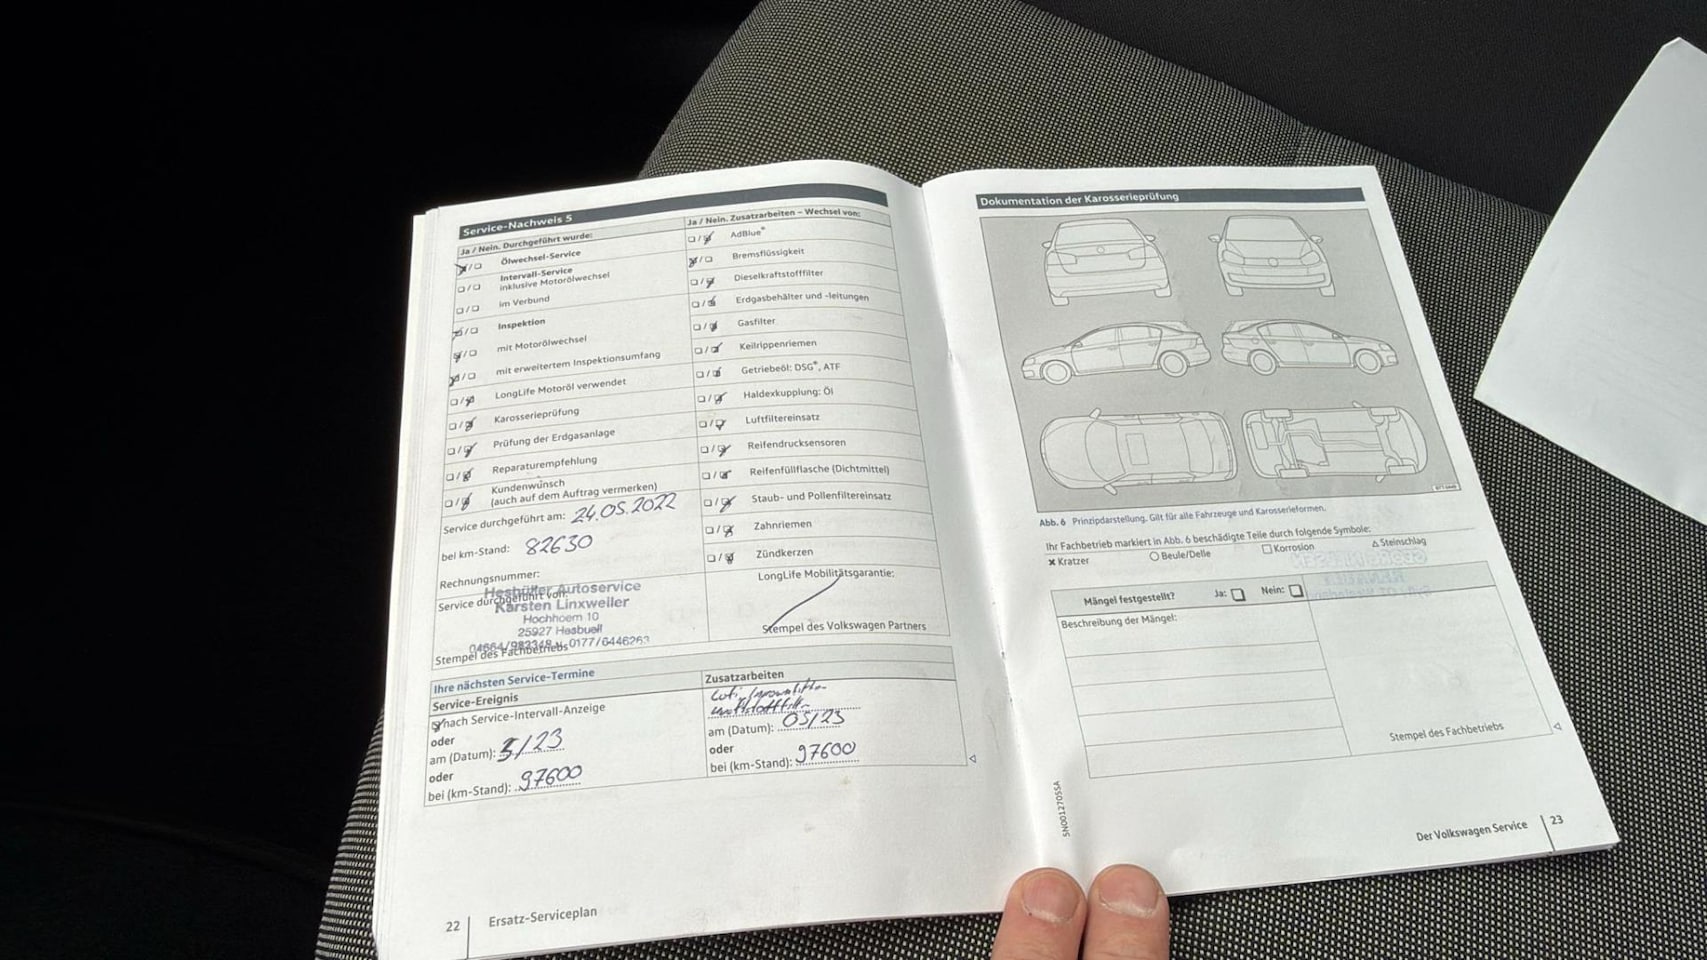 Service-Nachweis 5
Ja / Nein. Durchgeführt wurde:
Ölwechsel-Service
Intervall-Service
inklusive Motorölwechsel
im Verbund
Inspektion
mit Motorölwechsel
mit erweitertem Inspektionsumfang
LongLife Motoröl verwendet
Karosserieprüfung
Prüfung der Erdgasanlage
Reparaturempfehlung
Kundenwunsch
(auch auf dem Auftrag vermerken)
Service durchgeführt am: 24.05.2022
bei km-Stand: 82630
Rechnungsnummer:
Service durchgeführt von:
Autoservice
Karsten Linxweiler
Hochhoem 10
25927
0177/6446263
Stempel des Fachbetriebs
Ja / Nein. Zusatzarbeiten – Wechsel von:
AdBlue®
Bremsflüssigkeit
Dieselkraftstofffilter
Erdgasbehälter und -leitungen
Gasfilter
Keilrippenriemen
Getriebeöl: DSG®, ATF
Haldexkupplung: Öl
Luftfiltereinsatz
Reifendrucksensoren
Reifenfüllflasche (Dichtmittel)
Staub- und Pollenfiltereinsatz
Zahnriemen
Zündkerzen
LongLife Mobilitätsgarantie:
Stempel des Volkswagen Partners
Ihre nächsten Service-Termine
Service-Ereignis
nach Service-Intervall-Anzeige
oder
am (Datum): 5/23
oder
bei (km-Stand): 97600
Zusatzarbeiten
am (Datum): 05/23
oder
bei (km-Stand): 97600
22 Ersatz-Serviceplan
Dokumentation der Karosserieprüfung
Abb. 6 Prinzipdarstellung. Gilt für alle Fahrzeuge und Karosserieformen.
Ihr Fachbetrieb markiert in Abb. 6 beschädigte Teile durch folgende Symbole:
Kratzer Beule/Delle Korrosion Steinschlag
Mängel festgestellt? Ja: Nein:
Beschreibung der Mängel:
Stempel des Fachbetriebs
5N0012705SA
Der Volkswagen Service 23